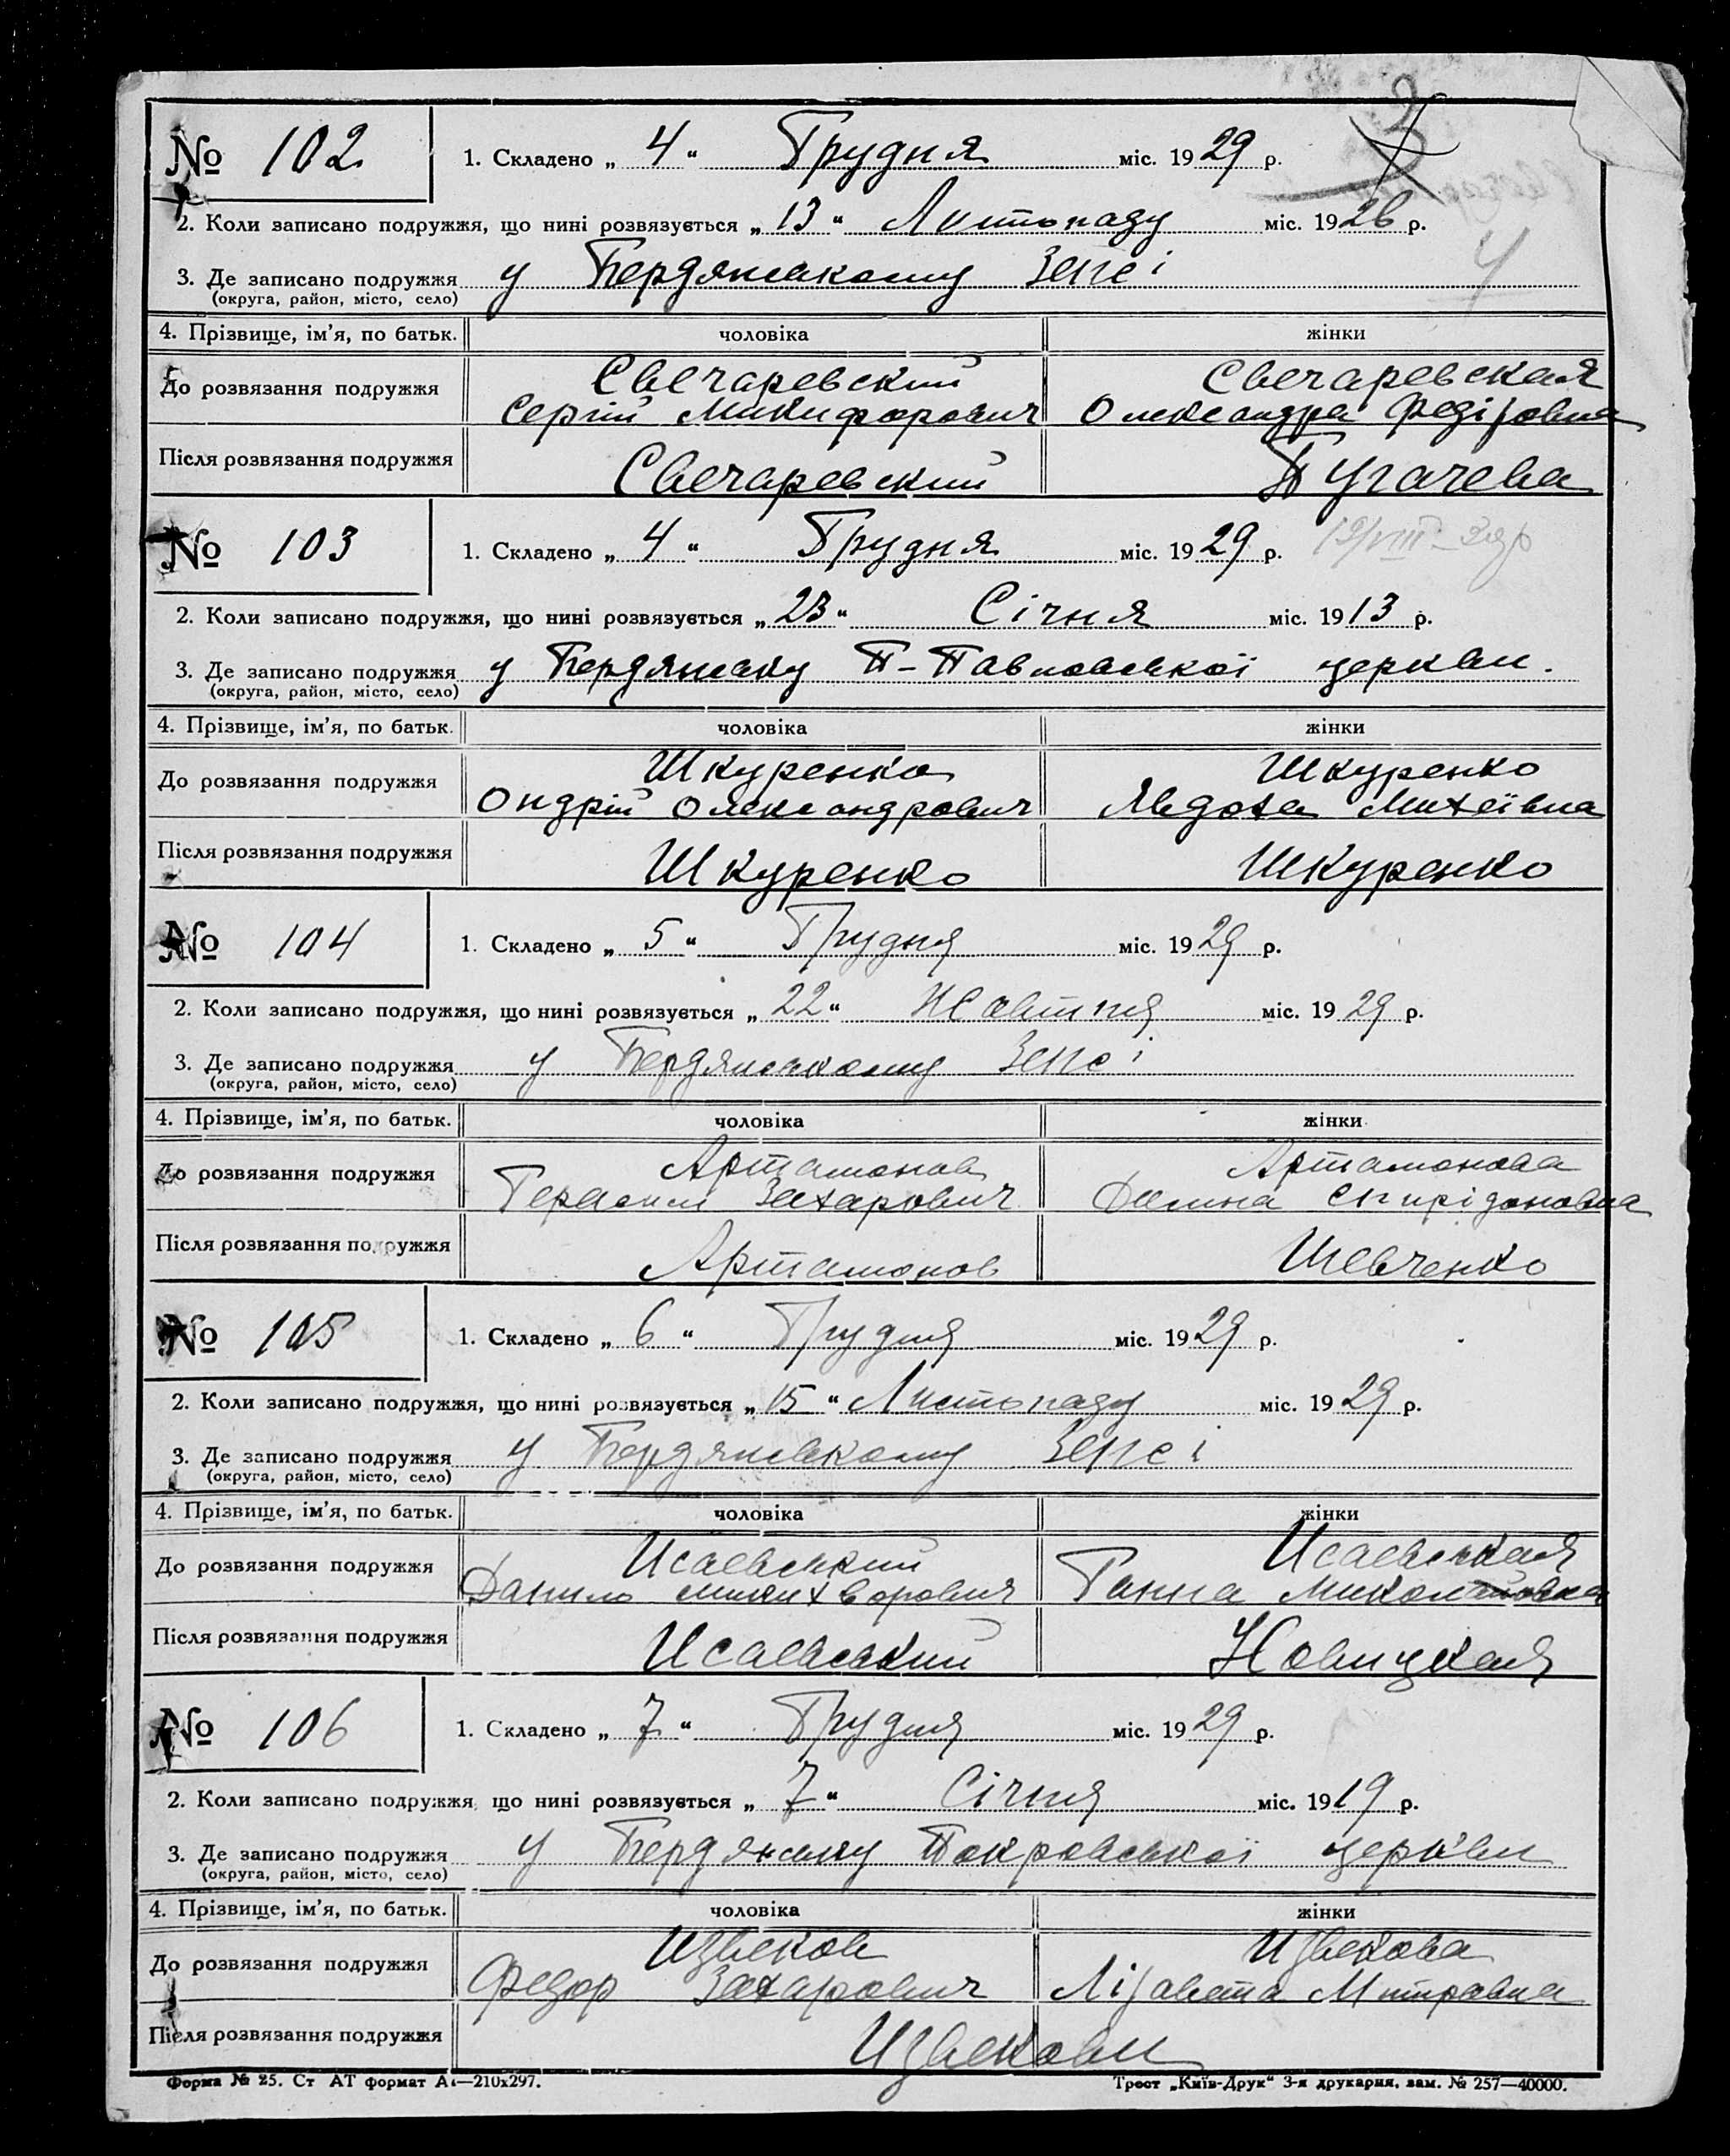 № 102 1. Складено „ 4 “ Грудня міс. 1929 р.
2. Коли записано подружжя, що нині розвязується „ 13 “ Листопаду міс. 1926 р.
3. Де записано подружжя у Бердянському Загсі
(округа, район, місто, село)
4
4. Прізвище, ім'я, по батьк. чоловіка жінки
До розвязання подружжя Свечаревский Свечаревская
Сергій Микифорович Олександра Федіровна
Після розвязання подружжя Свечаревский Пугачева
№ 103 1. Складено „ 4 “ Грудня міс. 1929 р.
2. Коли записано подружжя, що нині розвязується „ 23 “ Січня міс. 1913 р.
3. Де записано подружжя у Бердянську П-Павловської церкви.
(округа, район, місто, село)
4. Прізвище, ім'я, по батьк. чоловіка жінки
До розвязання подружжя Шкуренко Шкуренко
Ондрій Олександрович Явдоха Михеївна
Після розвязання подружжя Шкуренко Шкуренко
№ 104 1. Складено „ 5 “ Грудня міс. 1929 р.
2. Коли записано подружжя, що нині розвязується „ 22 “ Жовтня міс. 1929 р.
3. Де записано подружжя у Бердянському Загсі
(округа, район, місто, село)
4. Прізвище, ім'я, по батьк. чоловіка жінки
До розвязання подружжя Артамонов Артамонова
Герасим Захарович Спирідоновна
Після розвязання подружжя Артамонов Шевченко
№ 105 1. Складено „ 6 “ Грудня міс. 1929 р.
2. Коли записано подружжя, що нині розвязується „ 15 “ Листопаду міс. 1929 р.
3. Де записано подружжя у Бердянському Загсі
(округа, район, місто, село)
4. Прізвище, ім'я, по батьк. чоловіка жінки
До розвязання подружжя Исаевський Исаевская
Данило Микихворович Ганна Миколаївна
Після розвязання подружжя Исаевський Новицкая
№ 106 1. Складено „ 7 “ Грудня міс. 1929 р.
2. Коли записано подружжя, що нині розвязується „ 7 “ Січня міс. 1919 р.
3. Де записано подружжя у Бердянську Покровської церкви
(округа, район, місто, село)
4. Прізвище, ім'я, по батьк. чоловіка жінки
До розвязання подружжя Извеков Извекова
Федор Захарович Лізавета Митровна
Після розвязання подружжя Извекови
Форма № 25. Ст АТ формат А4—210х297. Трест „Київ-Друк“ 3-я друкарня, зам. № 257—40000.